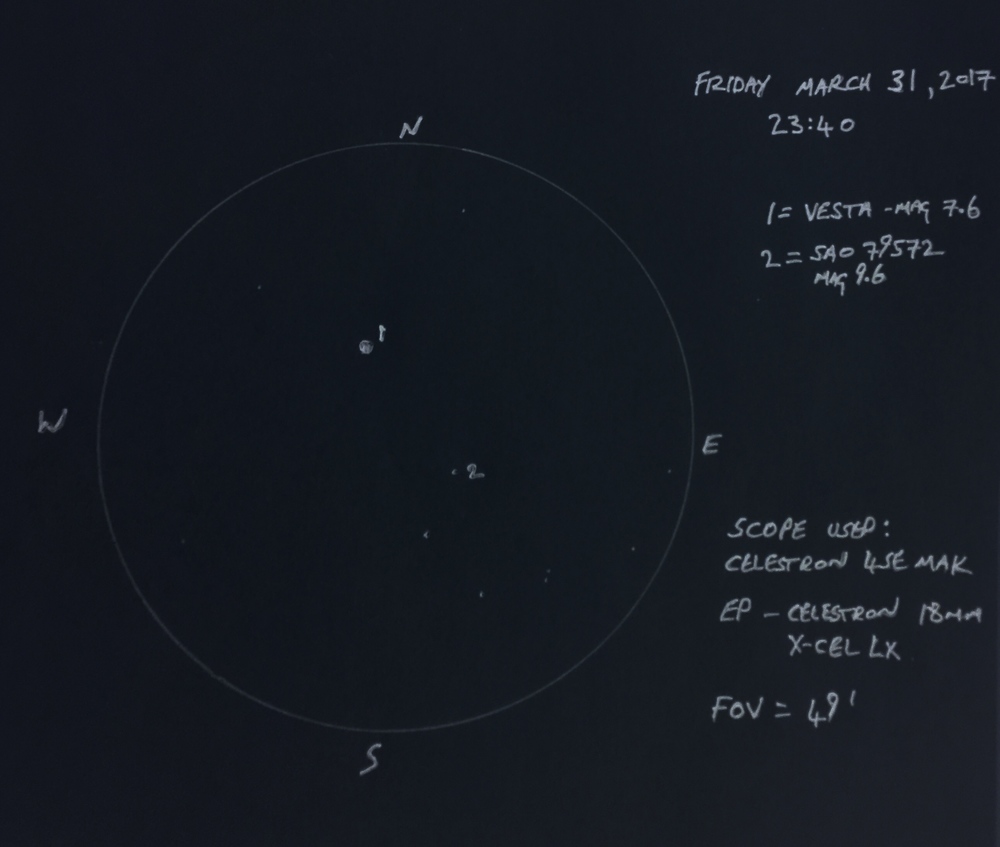 FRIDAY MARCH 31, 2017
23:40
N
1 = VESTA - MAG 7.6
2 = SAO 79572
MAG 9.6
1
W
E
2
SCOPE USED:
CELESTRON 4SE MAK
EP - CELESTRON 18MM
X-CEL LX
FOV = 49'
S